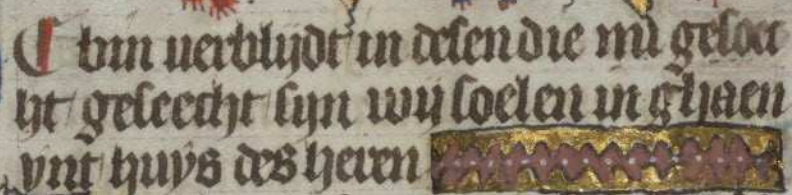 C bin verblijdt in desen die mi gesecc
ht geseecht sijn wij soelen in ghaen
ynt huys des heren